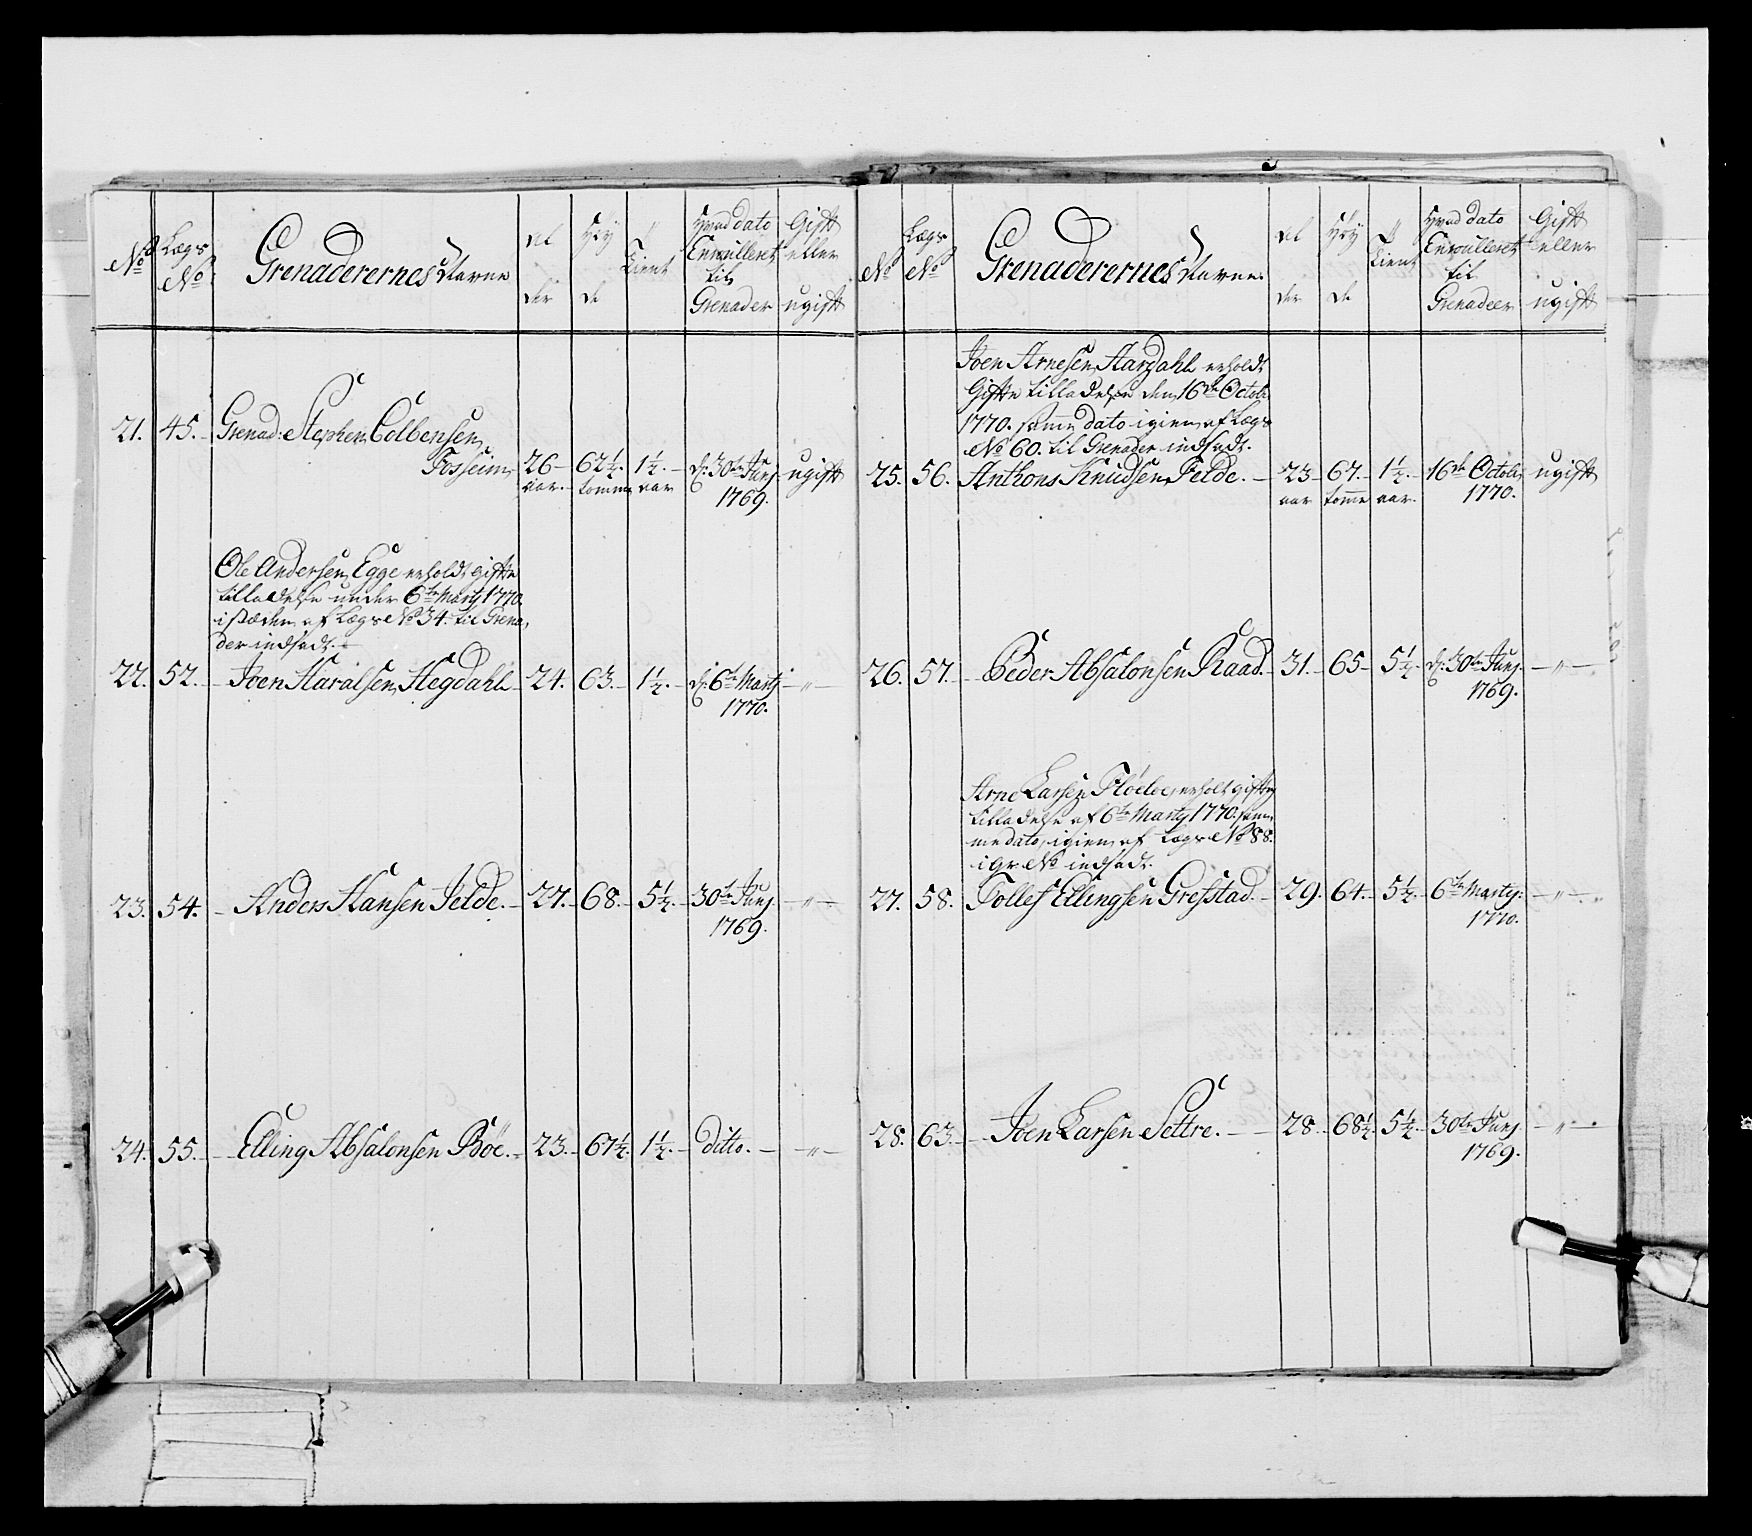 No Lægs No Grenaderernes Navne Al der Høy de Tient Hvad dato Enroulleret til Grenader Gift eller ugift
21. 45. Grenad: Stephen Colbensen
Fosseim 26 62 1/2. 1 1/2. d: 30te Junj ugift
aar. tomme aar 1769.
Ole Andersen Egge erholdt gifte
tilladelse under 6te Martj 1770.
istæden af Lægs No 34. til Grena
der indsadt.
22. 52. Joen Haralsen Hegdahl 24. 63. 1 1/2. d: 6te Martj — " —
1770.
23. 54. Anders Hansen Jelde. 27. 68. 5 1/2. 30te Junj — " —
1769.
24. 55. Elling Absalonsen Böe. 23. 67 1/2. 1 1/2. Ditto. — " —
No Lægs No Grenaderernes Navne Al der Høy de Tient Hvad dato Enroulleret til Grenadeer Gift eller ugift
Joen Arnesen Aardahl erholdt
Gifte tilladelse den 16de Octobr
1770. samme dato igien af Lægs
No 60. til Grenader indsadt.
25. 56. Anthons Knudsen Felde. 23 67. 1 1/2. 16de Octobr ugift
aar tomme aar. 1770.
26. 57. Peder Absalonsen Raad. 31. 65 5 1/2. d: 30te Junj — " —
1769.
Arne Larsen Flöeloe, erholt gifte
tilladelse af 6te Martj 1770. sam
me dato, igien af Lægs No 88.
i gr No indsadt.
27. 58. Tollef Ellingsen Grefstad. 29. 64. 5 1/2. 6te Martj. — " —
1770.
28. 63. Joen Larsen Settre. 28. 68 1/2. 5 1/2. 30te Junj — " —
1769.